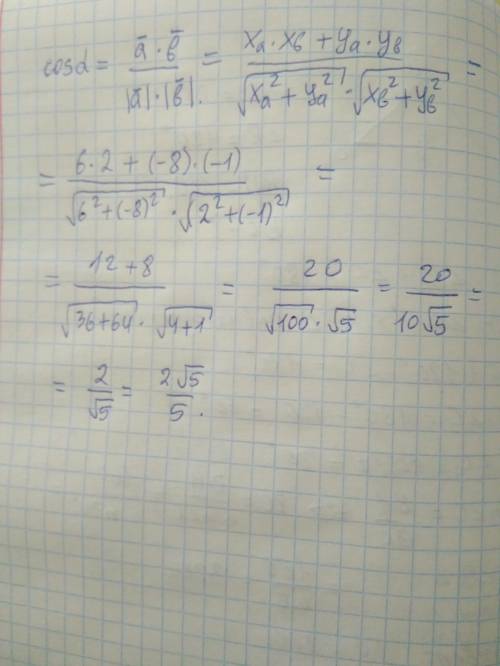 cosα = (ā · b̄) / (|ā| · |b̄|.) = (xₐ · x_b + yₐ · y_b) / (√(xₐ² + yₐ²) · √(x_b² + y_b²)) =
= (6 · 2 + (-8) · (-1)) / (√(6² + (-8)²) · √(2² + (-1)²)) =
= (12 + 8) / (√(36+64) · √(4+1)) = 20 / (√100 · √5) = 20 / (10√5) =
= 2/√5 = 2√5/5.